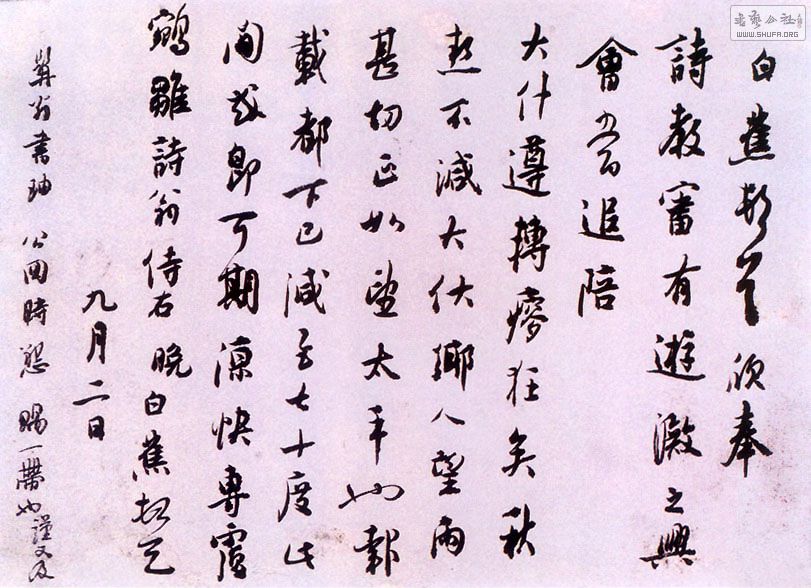 書藝公社
WWW.SHUFA.ORG
白蕉頓首欣奉
詩教審有遊之興
會當追陪
大什遵轉瘳狂矣秋
熱不減大伏鄉人望雨
甚切正如望太平也報
載都下已減至七十度此
間或即可期涼快專覆
鵷雛詩翁侍右 晚白蕉頓首
九月二日
糞翁書軸 公回時懇 賜一帶也謹又及